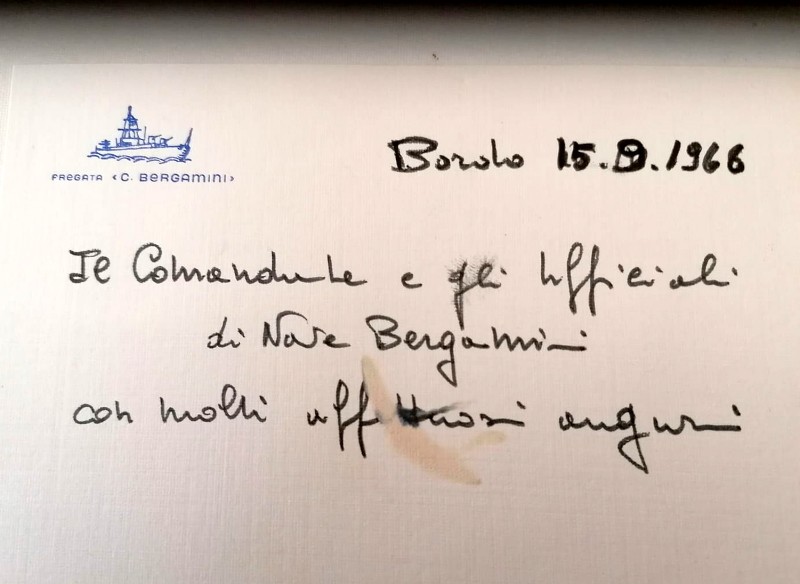 FREGATA «C. BERGAMINI»
Bordo 15.9.1966
Il Comandante e gli Ufficiali
di Nave Bergamini
con molti affettuosi auguri